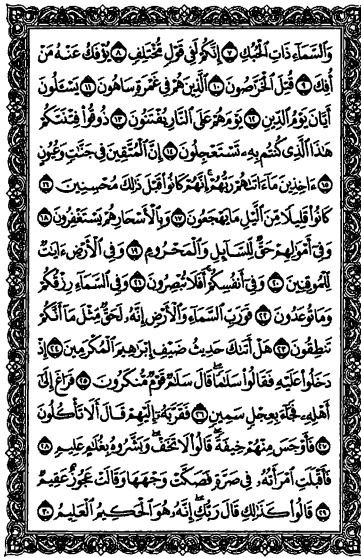 وَالسَّمَاءِ ذَاتِ الْحُبُكِ ٧ إِنَّكُمْ لَفِي قَوْلٍ مُّخْتَلِفٍ ٨ يُؤْفَكُ عَنْهُ مَنْ
أُفِكَ ٩ قُتِلَ الْخَرَّاصُونَ ١٠ الَّذِينَ هُمْ فِي غَمْرَةٍ سَاهُونَ ١١ يَسْـَٔلُونَ
أَيَّانَ يَوْمُ الدِّينِ ١٢ يَوْمَ هُمْ عَلَى النَّارِ يُفْتَنُونَ ١٣ ذُوقُوا فِتْنَتَكُمْ
هَٰذَا الَّذِي كُنتُم بِهِۦ تَسْتَعْجِلُونَ ١٤ إِنَّ الْمُتَّقِينَ فِي جَنَّٰتٍ وَعُيُونٍ
١٥ ءَاخِذِينَ مَا ءَاتَىٰهُمْ رَبُّهُمْ إِنَّهُمْ كَانُوا قَبْلَ ذَٰلِكَ مُحْسِنِينَ ١٦
كَانُوا قَلِيلًا مِّنَ الَّيْلِ مَا يَهْجَعُونَ ١٧ وَبِالْأَسْحَارِ هُمْ يَسْتَغْفِرُونَ ١٨
وَفِي أَمْوَٰلِهِمْ حَقٌّ لِّلسَّائِلِ وَالْمَحْرُومِ ١٩ وَفِي الْأَرْضِ ءَايَٰتٌ
لِّلْمُوقِنِينَ ٢٠ وَفِي أَنفُسِكُمْ أَفَلَا تُبْصِرُونَ ٢١ وَفِي السَّمَاءِ رِزْقُكُمْ
وَمَا تُوعَدُونَ ٢٢ فَوَرَبِّ السَّمَاءِ وَالْأَرْضِ إِنَّهُۥ لَحَقٌّ مِّثْلَ مَا أَنَّكُمْ
تَنطِقُونَ ٢٣ هَلْ أَتَىٰكَ حَدِيثُ ضَيْفِ إِبْرَٰهِيمَ الْمُكْرَمِينَ ٢٤ إِذْ
دَخَلُوا عَلَيْهِ فَقَالُوا سَلَٰمًا قَالَ سَلَٰمٌ قَوْمٌ مُّنكَرُونَ ٢٥ فَرَاغَ إِلَىٰ
أَهْلِهِۦ فَجَاءَ بِعِجْلٍ سَمِينٍ ٢٦ فَقَرَّبَهُۥ إِلَيْهِمْ قَالَ أَلَا تَأْكُلُونَ
٢٧ فَأَوْجَسَ مِنْهُمْ خِيفَةً قَالُوا لَا تَخَفْ وَبَشَّرُوهُ بِغُلَٰمٍ عَلِيمٍ ٢٨
فَأَقْبَلَتِ امْرَأَتُهُۥ فِي صَرَّةٍ فَصَكَّتْ وَجْهَهَا وَقَالَتْ عَجُوزٌ عَقِيمٌ
٢٩ قَالُوا كَذَٰلِكِ قَالَ رَبُّكِ إِنَّهُۥ هُوَ الْحَكِيمُ الْعَلِيمُ ٣٠